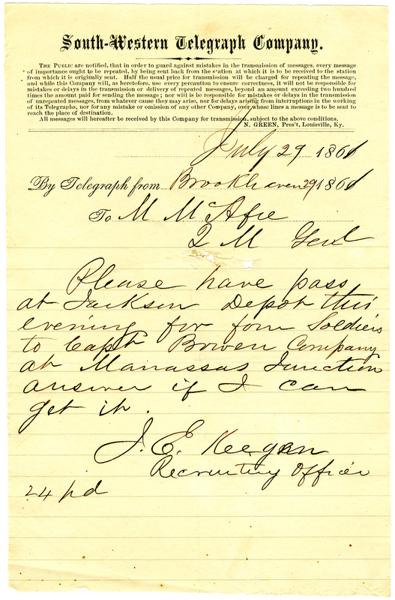 South-Western Telegraph Company.
THE PUBLIC are notified, that in order to guard against mistakes in the transmission of messages, every message
of importance ought to be repeated, by being sent back from the station at which it is to be received to the station
from which it is originally sent. Half the usual price for transmission will be charged for repeating the message,
and while this Company will, as heretofore, use every precaution to ensure correctness, it will not be responsible for
mistakes or delays in the transmission or delivery of repeated messages, beyond an amount exceeding two hundred
times the amount paid for sending the message; nor will it be responsible for mistakes or delays in the transmission
of unrepeated messages, from whatever cause they may arise, nor for delays arising from interruptions in the working
of its Telegraphs, nor for any mistake or omission of any other Company, over whose lines a message is to be sent to
reach the place of destination.
All messages will hereafter be received by this Company for transmission, subject to the above conditions.
N. GREEN, Pres't, Louisville, Ky.
July 29 1861
By Telegraph from Brookhaven 29 1861
To M McAfee
Q M Genl
Please have pass
at Jackson Depot this
evening for four Soldiers
to Capt Bowen Company
at Manassas Junction
answer if I can
get it.
J. E. Keegan
Recruiting Officer
24 pd